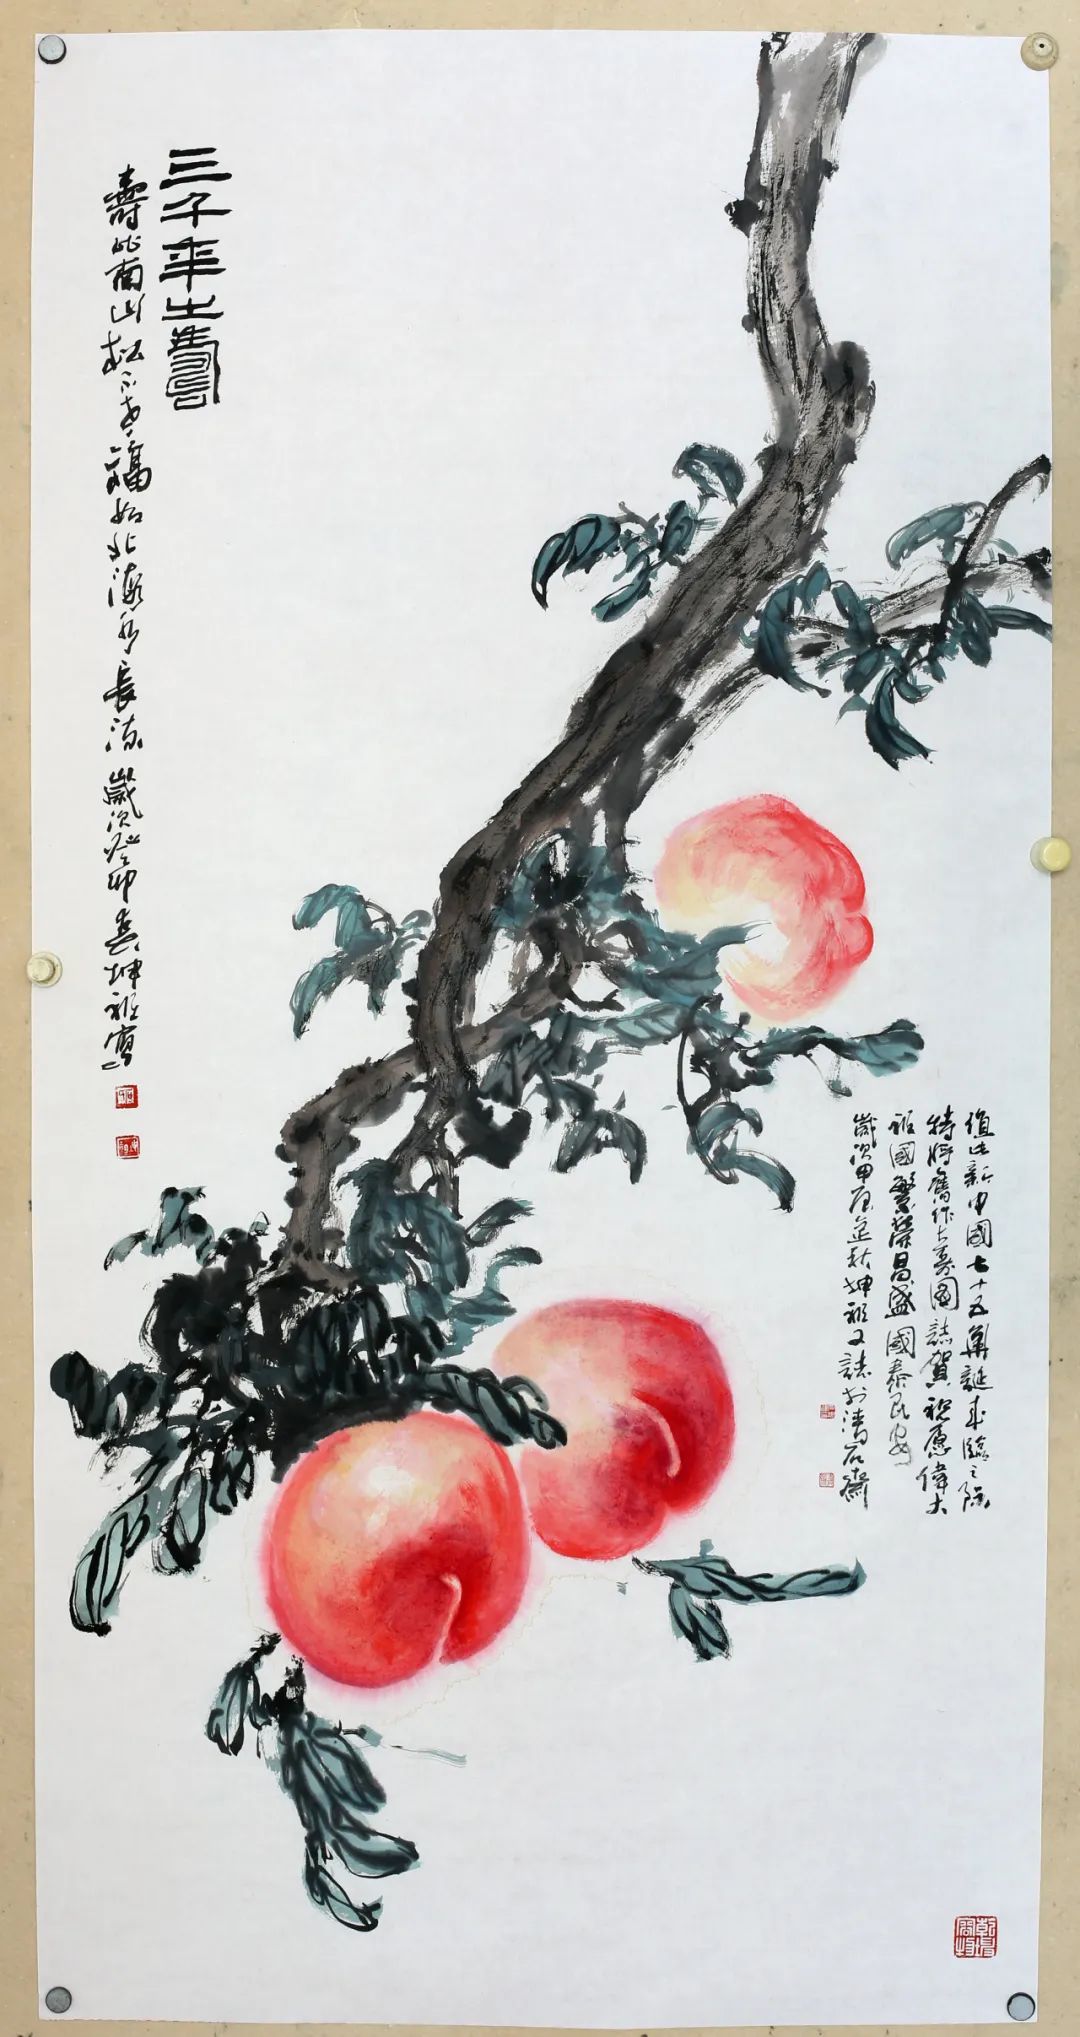 三千年之壽
壽比南山松不老福如北海水長流歲次癸卯春坤祖寫
值此新中國七十五華誕來臨之際
特將舊作大壽圖誌賀祝愿偉大
祖國繁榮昌盛國泰民安
歲次甲辰秋坤祖又誌於石齋